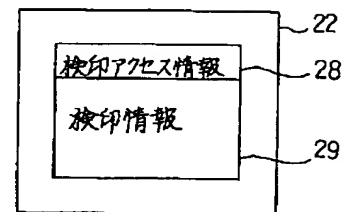 22
検印アクセス情報 28
検印情報
29